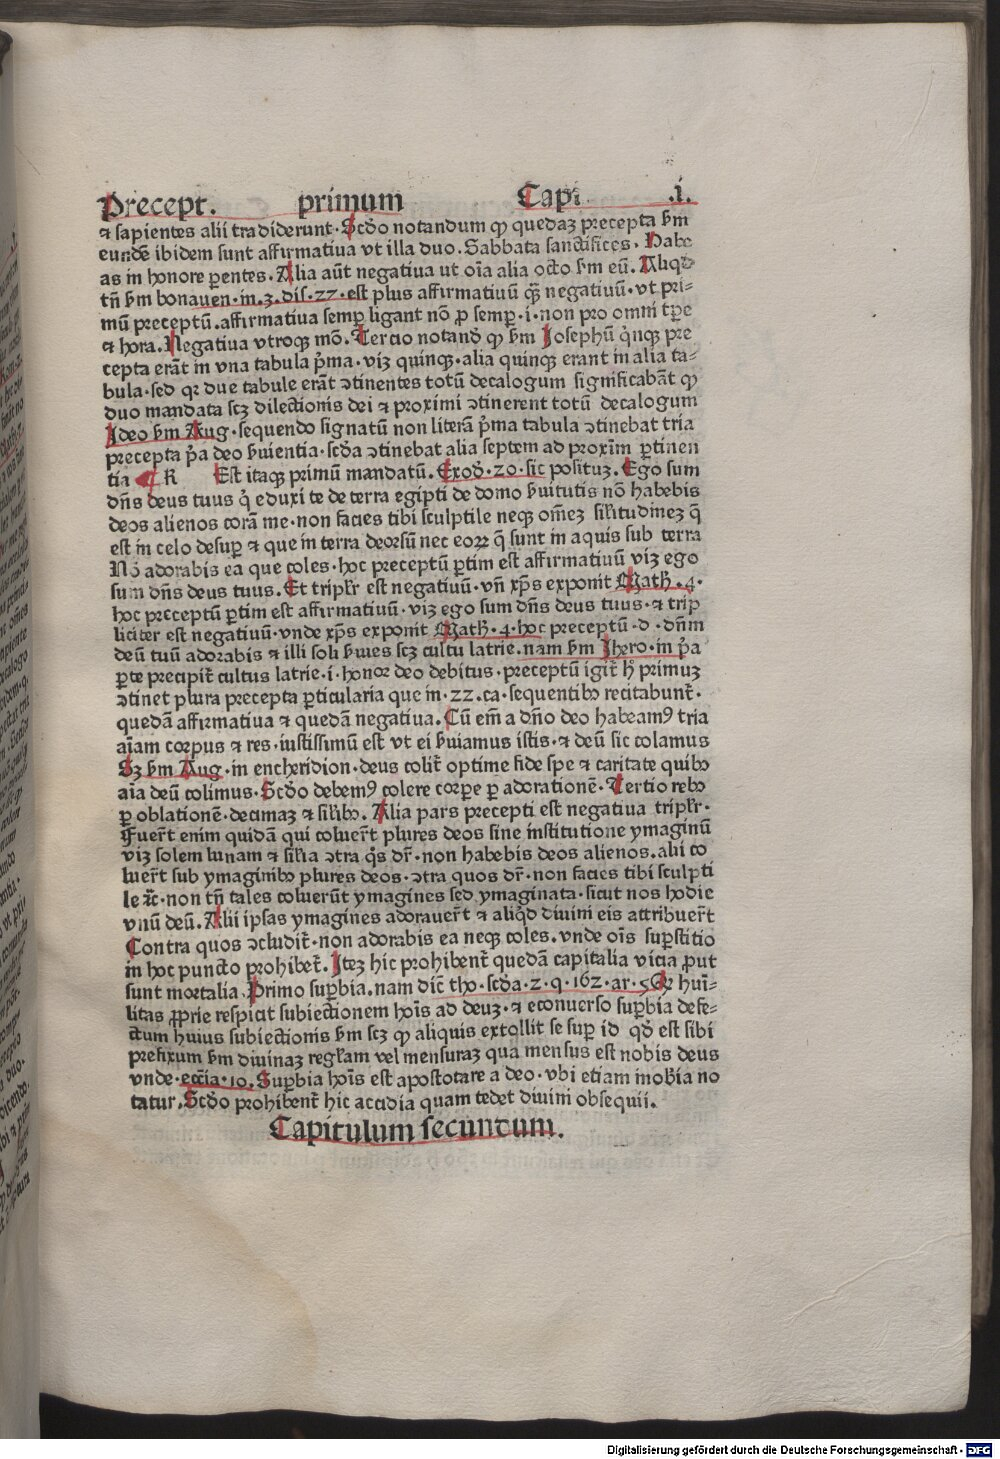 Precept. primum Capi .i.
⁊ sapientes alii tradiderunt· Scdo notandum ꝙ quedaꝫ precepta ẜm
eundē ibidem sunt affirmatiua vt illa duo. Sabbata sanctifices· Habe
as in honore ꝑentes· Alia aūt negatiua ut oīa alia octo ẜm eū. Aliqd
tn̄ ẜm bonauen·in·3·dis·27·est plus affirmatiuū qꝫ̄ negatiuū·vt pri⸗
mū preceptū.affirmatiua semꝑ ligant nō ꝓ semꝑ·i·non pro omni tꝑe
⁊ hora. Negatiua vtroqꝫ mō. Tercio notand ꝙ ẜm Iosephū qͥnqꝫ pre
cepta erāt in vna tabula pͥma·viꝫ quinqꝫ·alia quinqꝫ erant in alia ta⸗
bula·sed qꝛ due tabule erāt ↄtinentes totū decalogum significabāt ꝙ
duo mandata scꝫ dilectionis dei ⁊ proximi ↄtinerent totū decalogum
Ideo ẜm Aug·sequendo signatū non literā pͥma tabula ↄtinebat tria
precepta pͥa deo ẜuientia·scda ↄtinebat alia septem ad proxīm ꝑtinen
tia R Est itaqꝫ primū mandatū. Exod·20·sic posituꝫ. Ego sum
dn̄s deus tuus qͥ eduxi te de terra egipti de domo ẜuitutis nō habebis
deos alienos corā me·non facies tibi sculptile neqꝫ om̄eꝫ silitudineꝫ q̄
est in celo desuꝑ ⁊ que in terra deorsū nec eoꝝ q̄ sunt in aquis sub terra
Nō adorabis ea que coles·hoc preceptū ꝑtim est affirmatiuū viꝫ ego
sum dn̄s deus tuus. Et triplr est negatiuū·vn̄ xp̄s exponit Math·4·
hoc preceptū ꝑtim est affirmatiuū·viꝫ ego sum dn̄s deus tuus·⁊ trip
liciter est negatiuū·vnde xp̄s exponit Math·4·hoc preceptū·d·dn̄m
deū tuū adorabis ⁊ illi soli ẜuies scꝫ cultu latrie.nam ẜm Ihero·in pͥa
ꝑte precipit̄ cultus latrie·i·honor deo debitus·preceptū igit̄ h pͥmuꝫ
ↄtinet plura precepta ꝑticularia que in·22·ca·sequentibꝰ recitabunt̄·
quedā affirmatiua ⁊ quedā negatiua. Cū em̄ a dn̄o deo habeamꝰ tria
aīam corpus ⁊ res·iustissimū est vt ei ẜuiamus istis·⁊ deū sic colamus
Sꝫ ẜm Aug·in encheridion·deus colit̄ optime fide spe ⁊ caritate quibꝰ
aīa deū colimus· Scdo debemꝰ colere corꝑe ꝑ adorationē· Tertio rebꝰ
ꝑ oblationē·decimaꝫ ⁊ silibꝰ. Alia pars precepti est negatiua triplr·
Fuer̄t enim quidā qui coluer̄t plures deos sine institutione ymaginū
viꝫ solem lunam ⁊ silia ↄtra qͦs dr̄·non habebis deos alienos.alii co
luer̄t sub ymaginibꝰ plures deos·ↄtra quos dr̄·non facies tibi sculpti
le ⁊c·non tn̄ tales coluerūt ymagines sed ymaginata·sicut nos hodie
vnū deū. Alii ipsas ymagines adorauer̄t ⁊ aliqd diuini eis attribuer̄t
Contra quos ↄcludit̄·non adorabis ea neqꝫ coles.vnde oīs suꝑstitio
in hoc puncto prohibet̄. Iteꝫ hic prohibent̄ quedā capitalia vicia ꝓut
sunt mortalia. Primo suꝑbia.nam dic̄ tho·scda·2·q·162·ar·5 Qꝛ huī⸗
litas ꝓprie respicit subiectionem hoīs ad deuꝫ·⁊ econuerso suꝑbia defe⸗
ctum huius subiectionis ẜm scꝫ ꝙ aliquis extollit se suꝑ id qd est sibi
prefixum ẜm diuinaꝫ reglam vel mensuraꝫ qua mensus est nobis deus
vnde·eccīa·10. Suꝑbia hoīs est apostotare a deo·vbi etiam inobīa no
tatur. Scdo prohibent̄ hic accidia quam tedet diuini obsequii.
Capitulum secundum.
Digitalisierung gefördert durch die Deutsche Forschungsgemeinschaft - DFG